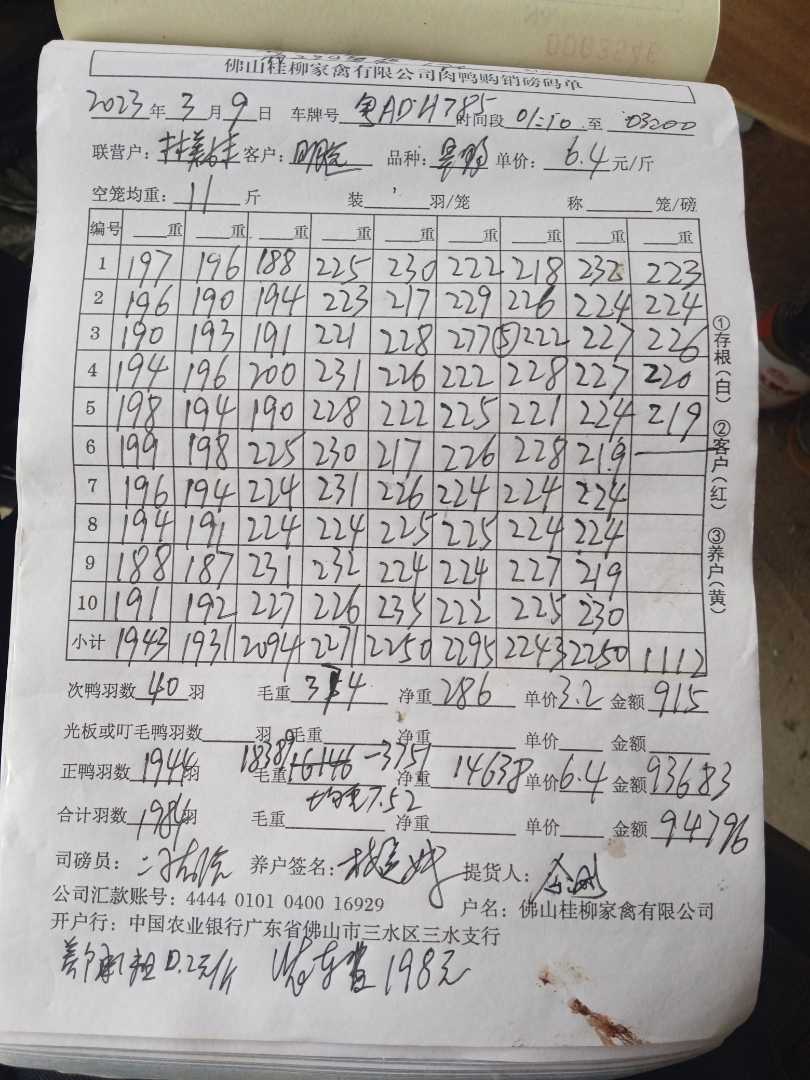 0003546
佛山桂柳家禽有限公司肉鸭购销磅码单
2023年3月9日 车牌号 粤ADH785 时间段 01:10 至 03200
联营户： 客户： 品种： 单价：6.4元/斤
空笼均重：11斤 装 羽/笼 称 笼/磅
编号 重 重 重 重 重 重 重 重 重
1 197 196 188 225 230 222 218 232 223
2 196 190 194 223 217 229 226 224 224
3 190 193 191 221 228 277 ⑤222 227 226
4 194 196 200 231 226 222 228 227 220
5 198 194 190 228 222 225 221 224 219
6 199 198 225 230 217 226 228 219
7 196 194 224 231 226 224 224 224
8 194 191 224 224 225 225 224 224
9 188 187 231 232 224 224 227 219
10 191 192 227 226 235 222 225 230
小计 1943 1931 2094 2271 2250 2295 2243 2250 1112
①存根（白） ②客户（红） ③养户（黄）
次鸭羽数 40 羽 毛重 净重 286 单价 3.2 金额 915
光板或叮毛鸭羽数 羽 毛重 净重 单价 金额
正鸭羽数 1944 羽 毛重 18389 16146 -3751 净重 14638 单价 6.4 金额 93683
均重7.52
合计羽数 1984 羽 毛重 净重 单价 金额 94796
司磅员： 养户签名： 提货人：
公司汇款账号：4444 0101 0400 16929 户名：佛山桂柳家禽有限公司
开户行：中国农业银行广东省佛山市三水区三水支行
0.2元/斤 198元